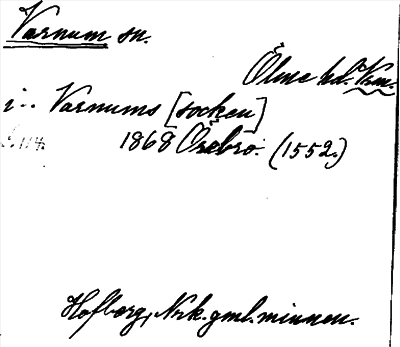 Varnum sn.
Ölme hd. Vrm.
i.. Varnums [socken]
1868 Örebro. (1552.)
Hofberg, Nrk. gml. minnen.